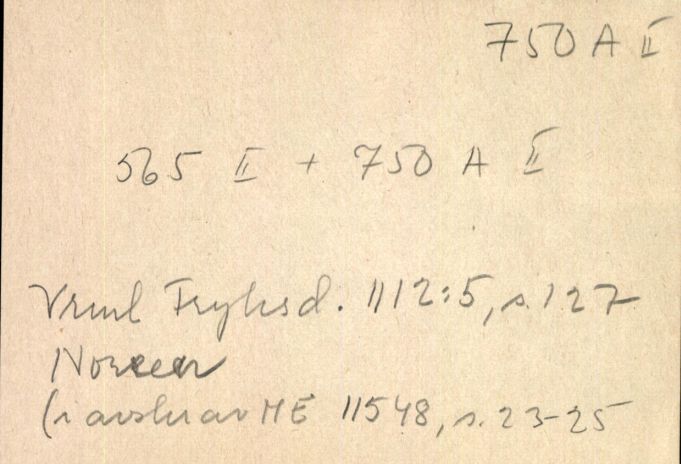 750 A II
565 II + 750 A II
Vrml Fryksd. 1112:5, s. 127
Noreen
(i avskr av ME 11548, s. 23-25